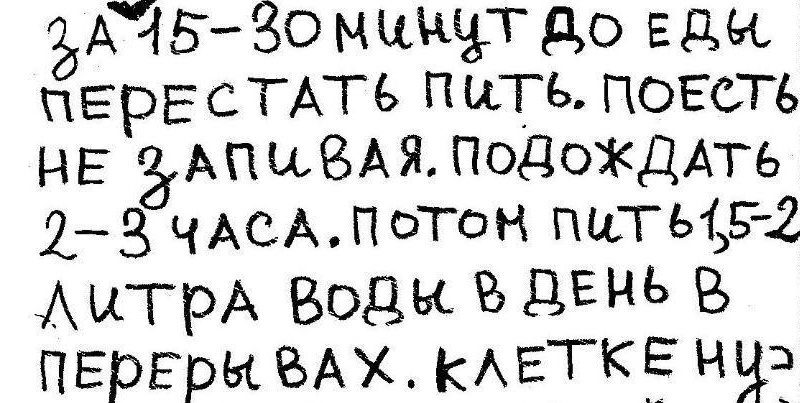 ЗА 15-30 МИНУТ ДО ЕДЫ
ПЕРЕСТАТЬ ПИТЬ. ПОЕСТЬ
НЕ ЗАПИВАЯ. ПОДОЖДАТЬ
2-3 ЧАСА. ПОТОМ ПИТЬ 1,5-2
ЛИТРА ВОДЫ В ДЕНЬ В
ПЕРЕРЫВАХ. КЛЕТКЕ